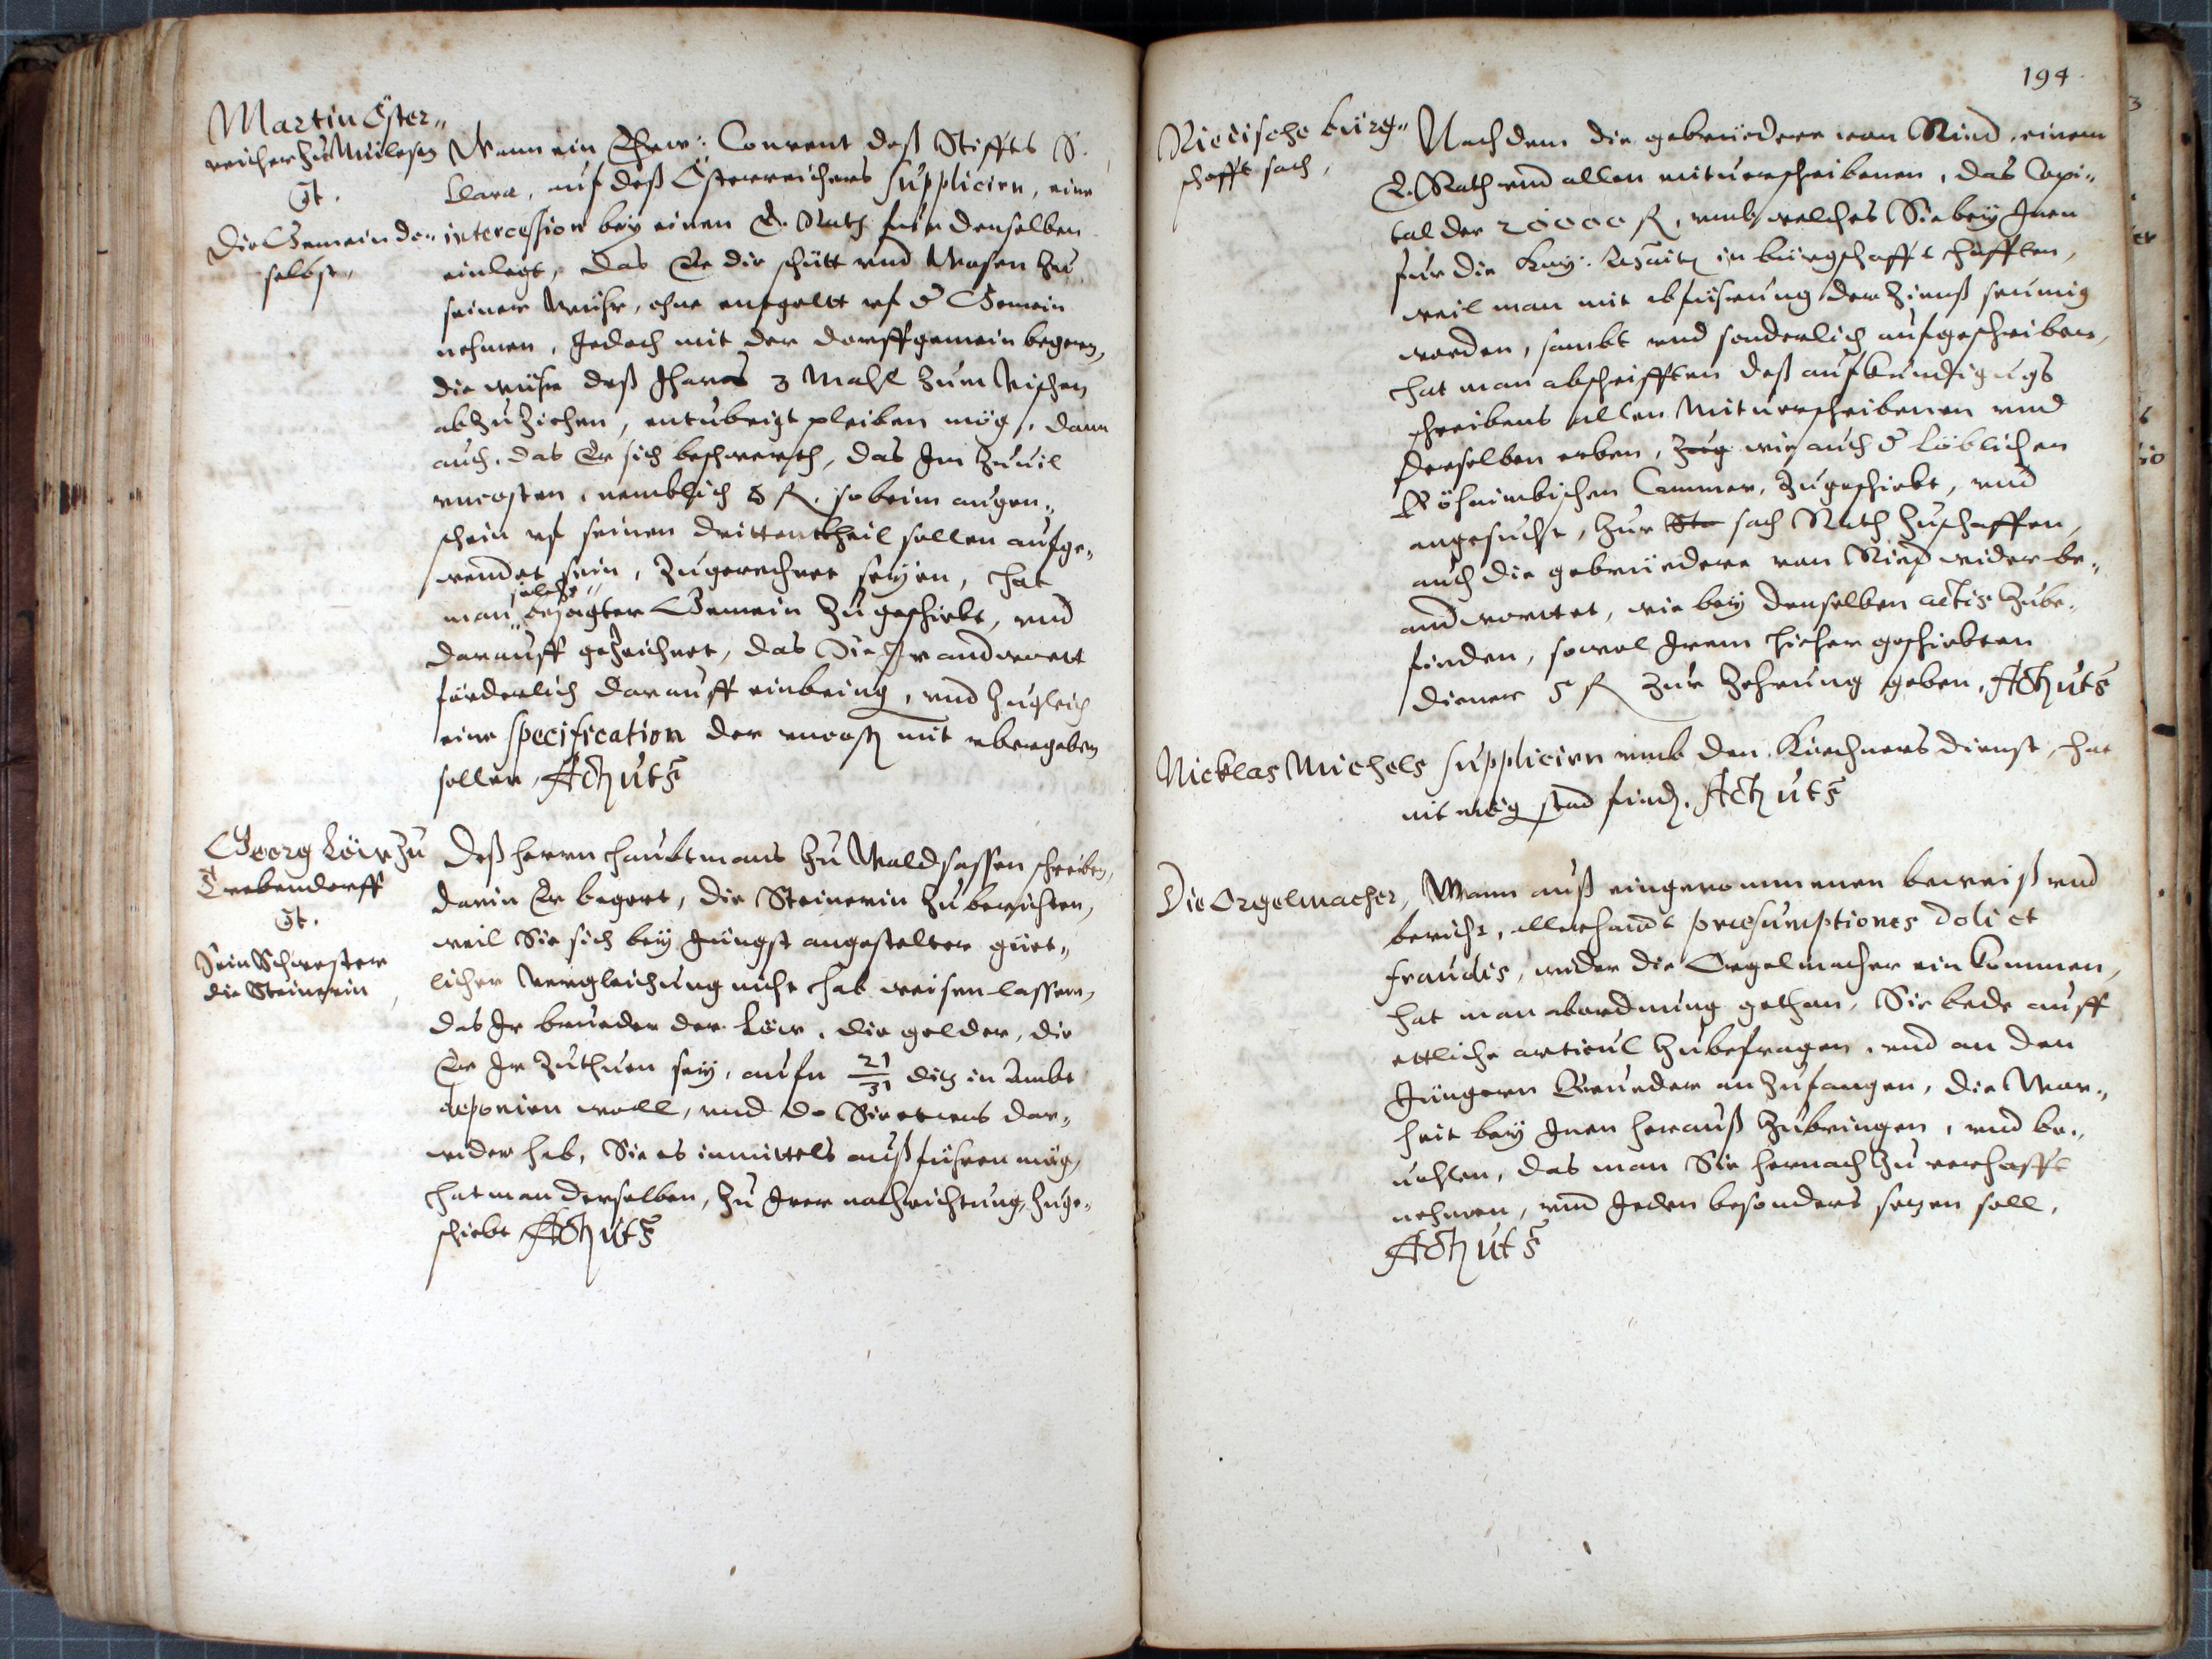 Martin Öster„
reicher zu Mülesen
Ct.
Die Gemein do„
selbst,
Wann ein Ehrw: Convent deß Stiffts S.
Clara, auf deß Österreichers suppliciren, eine
intercession bey einen E. Rath für denselben
einlegt, das Er die schütt vnd Wasen zu
seiner wühr, ohne entgeltt vf d Gemein
nehmen, Jedoch mit der dorffgemein begern,
die wühr deß Jhares 3 Mahl zum Vischen
abzuziehen, vnbetrübt pleiben mög, dann
auch, das Er sich beschwerth, das Im zuuil
vncosten, nemblich 8 fl. so beim augen„
schein vf seinen drittentheil sollen aufge„
wendet sein, zugerechnet seyen, hat
man solche besagter Gemein zugeschickt, vnd
darauff gezeichnet, das Sie Ir andwortt
förderlich darauff einbring, vnd zugleich
eine specification der vncostn mit vbergeben
sollen, Act ut s
Georg Löw zu
Trebendorff
Ct.
Sein Schwester
die Steinerin,
Deß herrn haubtmans zu Waldsassen schreiben,
darin Er begert, die Steinerin zuberichten,
weil Sie sich bey Jüngst angestelter güet„
licher vergleichung nicht hab weisen lassen,
das Ir brueder der Löw, die gelder, die
Er Ir zuthuen sey, aufn 21/31 diß in Ambt
deponirn woll, vnd do Sie etwas dar„
wider hab, Sie es inmittels außführen mög,
hat man derselben, zu Irer nachrichtung, zuge„
schickt Act ut s
194
Riedische bürg„
schafft sach,
Nachdem die gebrüedere von Ried, einem
E. Rath vnd allen mituerschribenen, das Capi„
tal der 20000 fl, vmb welches Sie bey Inen
für die Kay: Mait in bürgschafft hafften,
weil man mit abführung der Zienß seumig
worden, sambt vnd sonderlich aufgeschriben,
hat man abschrifften deß aufkündigungs
schreibens allen Mituerschribenen vnd
derselben erben, Zug wie auch d Löblichen
Böhaimbischen Cammer, zugeschickt, vnd
angesucht, zur Sta sach Rath zuschaffen,
auch die gebrüedere von Ried wider be„
andworttet, wie bey denselben actis zube„
finden, sowol Irem hieher geschickten
diener 5 fl zur Zehrung geben, Act ut s
Nicklas Michels suppliciren vmb den Kirchners dienst, hat
nit mög stad findn. Act ut s
Die Orgelmacher, Wann auß eingenommenen beweiß vnd
bericht, allerhandt præsumptiones doli et
fraudis, wider die Orgelmacher ein kommen,
hat man abordnung gethan, Sie bede auff
ettliche articul zubefragen, vnd an den
Jüngern Brueder anzufangen, die War„
heit bey Inen herauß zubringen, vnd be„
uohlen, das man Sie hernach zu verhafft
nehmen, vnd Jeden besonders setzen soll,
Act ut s